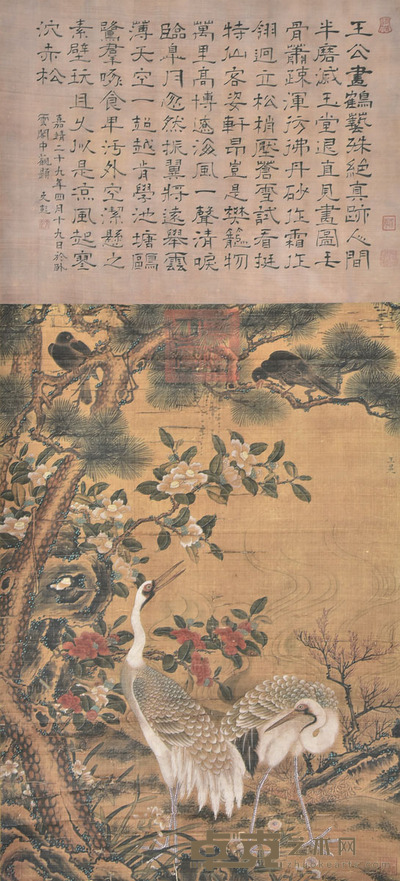 王公畫鶴藝殊絕真跡人間
半磨滅玉堂退直見畫圖毛
骨蕭疎渾彷彿丹砂作霜作
翎迥立松梢壓蒼雪試看挺
特仙客姿軒昂豈是樊籠物
萬里高搏遠海風一聲清唳
臨皋月忽然振翼將遠舉雲
薄天空一超越肯學池塘鷗
鷺羣啄食卑污外空潔懸之
素壁玩且久似是涼風起寒
沈赤松
嘉靖二十九年四月十九日於臥
雲閣中觀題